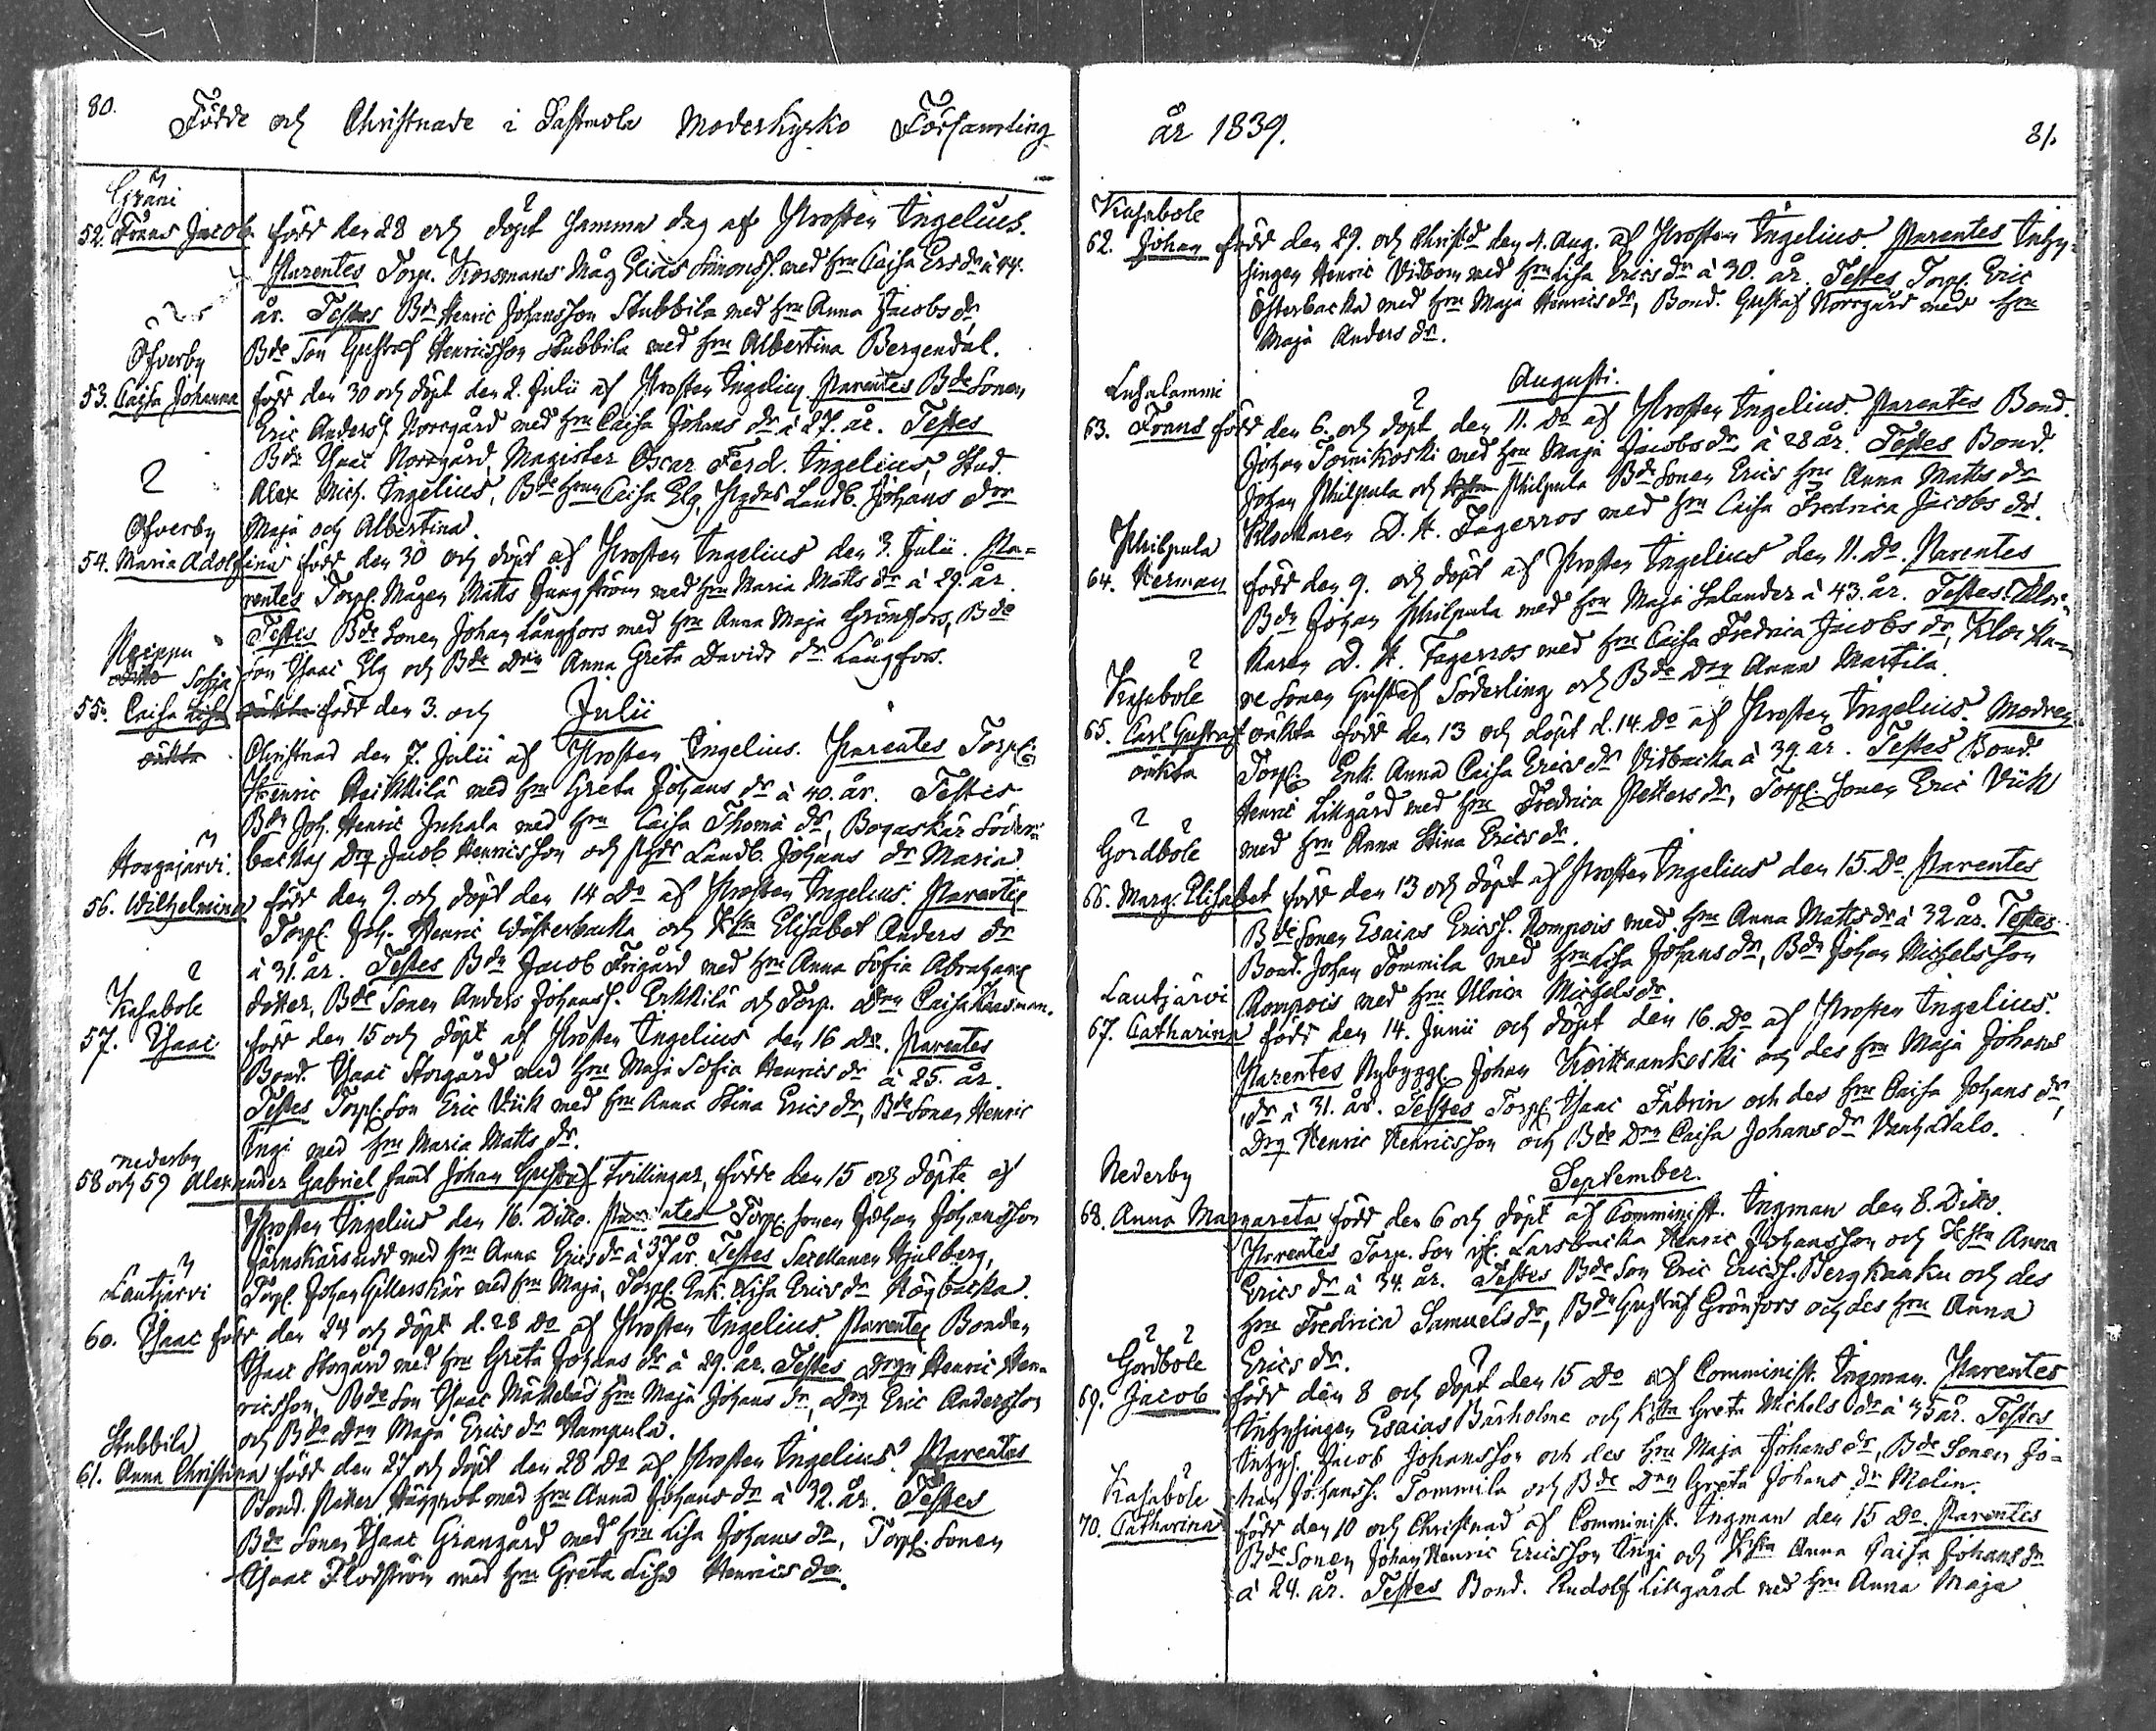 80.
Födde och Christnade i Sastmola Moderkyrko Församling
Gräni
52. Frans Jacob född den 28 och döpt samma dag af Prosten Ingelius.
Parentes Torp. Korsmans Måg Elias Simonss. med hru Caisa Ersdr à 44.
år. Testes Bdn Henric Johansson Stubbila med hru Anna Jacobs dr,
Bde Son Gustaf Henricsson Stubbila med hru Albertina Bergendal.
Öfverby
53. Caisa Johanna född den 30 och döpt den 2. Julii af Prosten Ingelius. Parentes Bde Sonen
Eric Anderss. Norrgård med hru Caisa Johans dr à 27. år. Testes
Bdn Isaac Norrgård, Magister Oscar Ferd. Ingelius, Stud.
Alex Mich. Ingelius, Bde hrun Caisa Elg, Landb. Johans drr
Maja och Albertina.
Öfverby
54. Maria Adolfina född den 30 och döpt af Prosten Ingelius den 3. Julii. Pa-
rentes Torp. Mågen Matts Ljungström med hru Maria Matts dr à 29. år.
Testes Bde Sonen Johan Långfors med hru Anna Maja Grönfors, Bde
Son Isaac Elg och Bde Drn Anna Greta Davids dr Långfors.
Julii
Sofia
55. Caisa Lisa oäkta född den 3. och
oäkta
Christnad den 7. Julii af Prosten Ingelius. Parentes Torp.
Henric Heikkilä med hru Greta Johans dr à 40. år. Testes
Bdn Joh. Henric Juhala med hru Caisa Thomæ dr, Bogaskär Söder-
backas Drg Jacob Henricsson och Landb. Johans dr Maria
Hongajärvi.
56. Wilhelmina född den 9. och döpt den 14 Do af Prosten Ingelius. Parentes
Torp. Joh. Henric Wästerbacka och Hstn Elisabet Anders dr
à 31. år. Testes Bdn Jacob Frigård med hru Anna Sofia Abrahams
dotter, Bde Sonen Anders Johanss. Erkkilä och Torp. Drn Caisa
Kasabole
57. Isaac född den 15 och döpt af Prosten Ingelius den 16 do. Parentes
Bond. Isaac Storgård med hru Maja Sofia Henrics dr à 25. år.
Testes Torp. Son Eric Viik med hru Anna Stina Erics dr, Bde Sonen Henric
Ingi med hru Maria Matts dr.
Nederby
58 och 59 Alexander Gabriel samt Johan Gustaf tvillingar, födde den 15 och döpte af
Prosten Ingelius den 16. Ditto. Parentes Torp. Sonen Johan Johansson
Järnskärsudd med hru Anna Erics dr à 37 år. Testes Sacellanen Hjulberg,
Torp. Johan Gillerskär med hru Maja, Torp. Enk. Lisa Erics dr Högbacka.
Lautjärvi
60. Isaac född den 24 och döpt d. 28 do af Prosten Ingelius. Parentes Bonden
Isaac Storgård med hru Greta Johans dr à 29. år. Testes Drgn Henric Hen-
ricsson, Bde Son Isaac Mäkelä hru Maja Johans dr, Drg Eric Andersson
och Bde Drn Maja Erics dr Hampula.
Stubbila
61. Anna Christina född den 27 och döpt den 28 do af Prosten Ingelius. Parentes
Bond. Petter Häggrot med hru Anna Johans dr à 32. år. Testes
Bde Sonen Isaac Grangård med hru Lisa Johans dr, Torp. Sonen
Isaac Flodström med hru Greta Lisa Henrics dr.
år 1839. 81.
Kasabole
62. Johan född den 29. och Christd den 4. Aug. af Prosten Ingelius. Parentes Inhy-
singen Henric Vidbom med hru Lisa Erics dr à 30. år. Testes Torp. Eric
Österbacka med hru Maja Henrics dr, Bond. Gustaf Norrgård med hru
Maja Anders dr.
Augusti.
Lusalammi
63. Frans född den 6. och döpt den 11. Do af Prosten Ingelius. Parentes Bond.
Johan Tornikoski med hru Maja Jacobs dr à 28 år. Testes Bond.
Johan Philpula och Philpula Bde Sonen Erics hru Anna Matts dr
Klockaren D. H. Fagerroos med hru Caisa Fredrica Jacobs dr.
Philpula
64. Herman född den 9. och döpt af Prosten Ingelius den 11. do. Parentes
Bdn Johan Philpula med hru Maja Salander à 43. år. Testes Kloc-
karen D. H. Fagerros med hru Caisa Fredrica Jacobs dr, Klocka-
re Sonen Gustaf Söderling och Bde Drn Anna Martila.
Kasabole
65. Carl Gustaf oäkta född den 13 och döpt d. 14. do af Prosten Ingelius. Modren
oäkta
Torp. Enk. Anna Caisa Erics dr Vidbacka à 39. år. Testes Bond.
Henric Lillgård med hru Fredrica Petters dr, Torp. Sonen Eric Viik
med hru Anna Stina Erics dr.
Gårdbole
66. Marg. Elisabet född den 13 och döpt af Prosten Ingelius den 15. do Parentes
Bde Sonen Esaias Ericss. Rompois med hru Anna Matts dr à 32 år. Testes
Bond. Johan Tommila med hru Lisa Johans dr, Bdn Johan Michelsson
Rompois med hru Ulrica Michels dr.
Lautjärvi
67. Catharina född den 14. Junii och döpt den 16. do af Prosten Ingelius.
Parentes Nybygg. Johan Korttaankoski och des hru Maja Johans
dr à 31. år. Testes Torp. Isaac Fabrin och des hru Caisa Johans dr,
Drg Henric Henricsson och Bde Drn Caisa Johans dr Vanhadalo.
September.
Nederby
68. Anna Margareta född den 6 och döpt af Comminist. Ingman den 8. Ditto.
Parentes Torp. Son Larsbacka Henric Johansson och Hstn Anna
Erics dr à 34. år. Testes Bde Son Eric Ericss. Bergknaku och des
hru Fredrica Samuels dr, Bdn Gustaf Grönfors och des hru Anna
Erics dr.
Gårdbole
69. Jacob född den 8 och döpt den 15 do af Comminist. Ingman. Parentes
Inhysingen Esaias Barholma och Hstn Greta Michels dr à 45 år. Testes
Inhys. Jacob Johansson och des hru Maja Johans dr, Bde Sonen Jo-
han Johanss. Tommila och Bde Drn Greta Johans dr Molin.
Kasabole
70. Catharina född den 10 och Christnad af Comminist. Ingman den 15 do. Parentes
Bde Sonen Johan Henric Ericsson Ingi och Hstn Anna Caisa Johans dr
à 24. år. Testes Bond. Rudolf Lillgård med hru Anna Maja